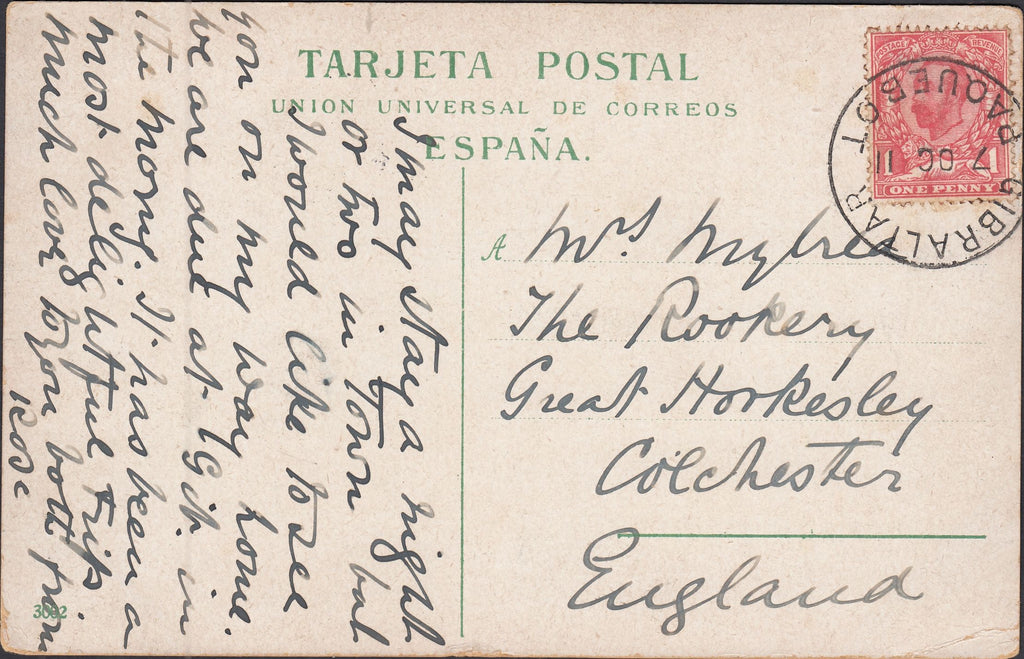 TARJETA POSTAL
UNION UNIVERSAL DE CORREOS
ESPAÑA.
I may stay a night
or two in Town but
I would like to see
you on my way home.
We are due at Gib. in
the morng. It has been a
most delightful trip
much love to you both from
Rose
A Mrs. Mybre
The Rookery
Great Horkesley
Colchester
England
3062
POSTAGE REVENUE
1 1
ONE PENNY
GIBRALTAR PAQUEBOT
7 OC 11